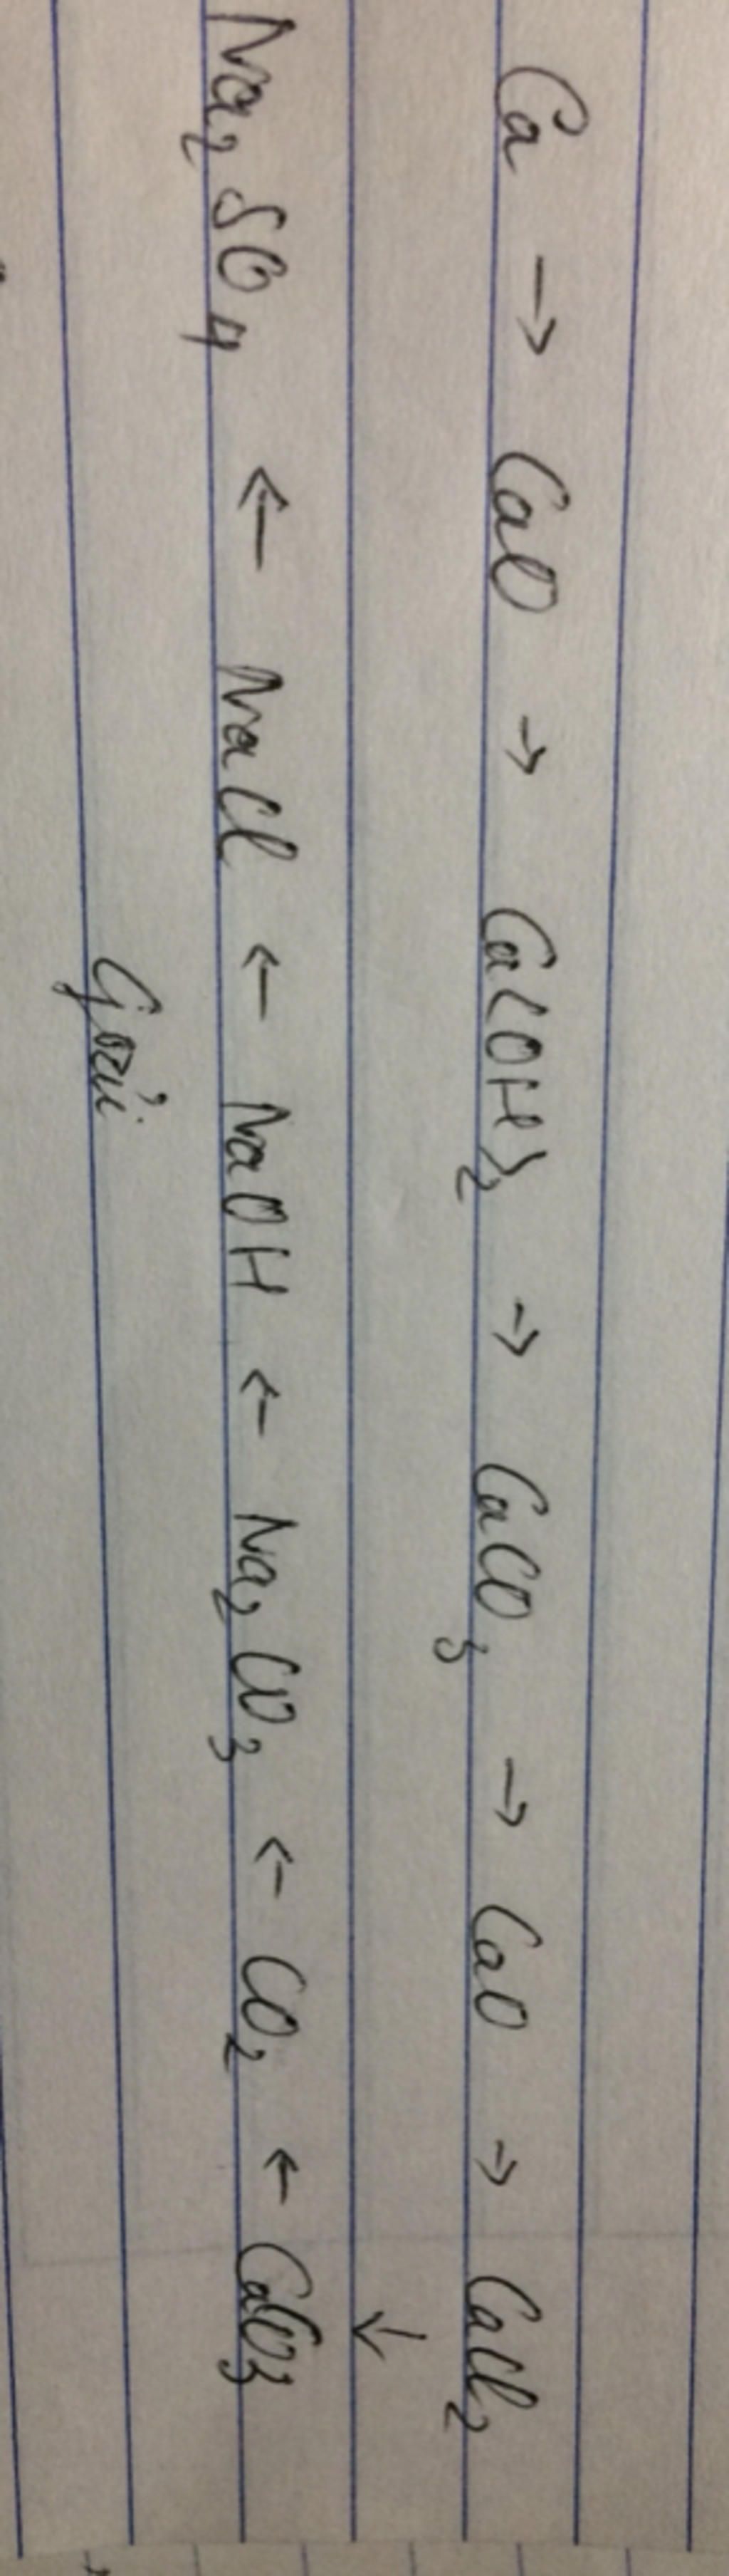 Ca → CaO → Ca(OH)₂ → CaCO₃ → CaO → CaCl₂
↓
Na₂SO₄ ← NaCl ← NaOH ← Na₂CO₃ ← CO₂ ← CaCO₃
Giải